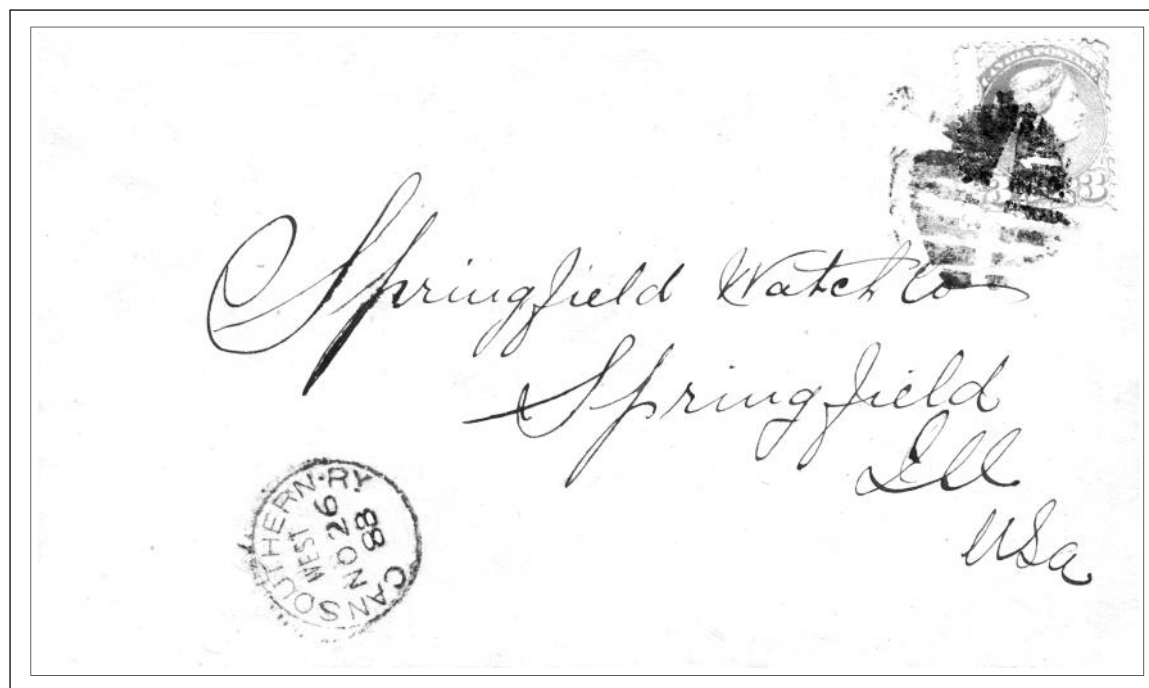 CANADA POSTAGE
3 3
Springfield Watch Co
Springfield
Ill
USa
CAN SOUTHERN·RY
WEST
NO 26
88